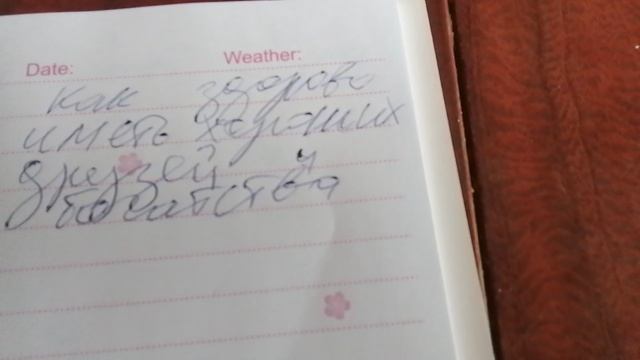 Date: Weather:
как здорово
иметь хороших
друзей и
богатства